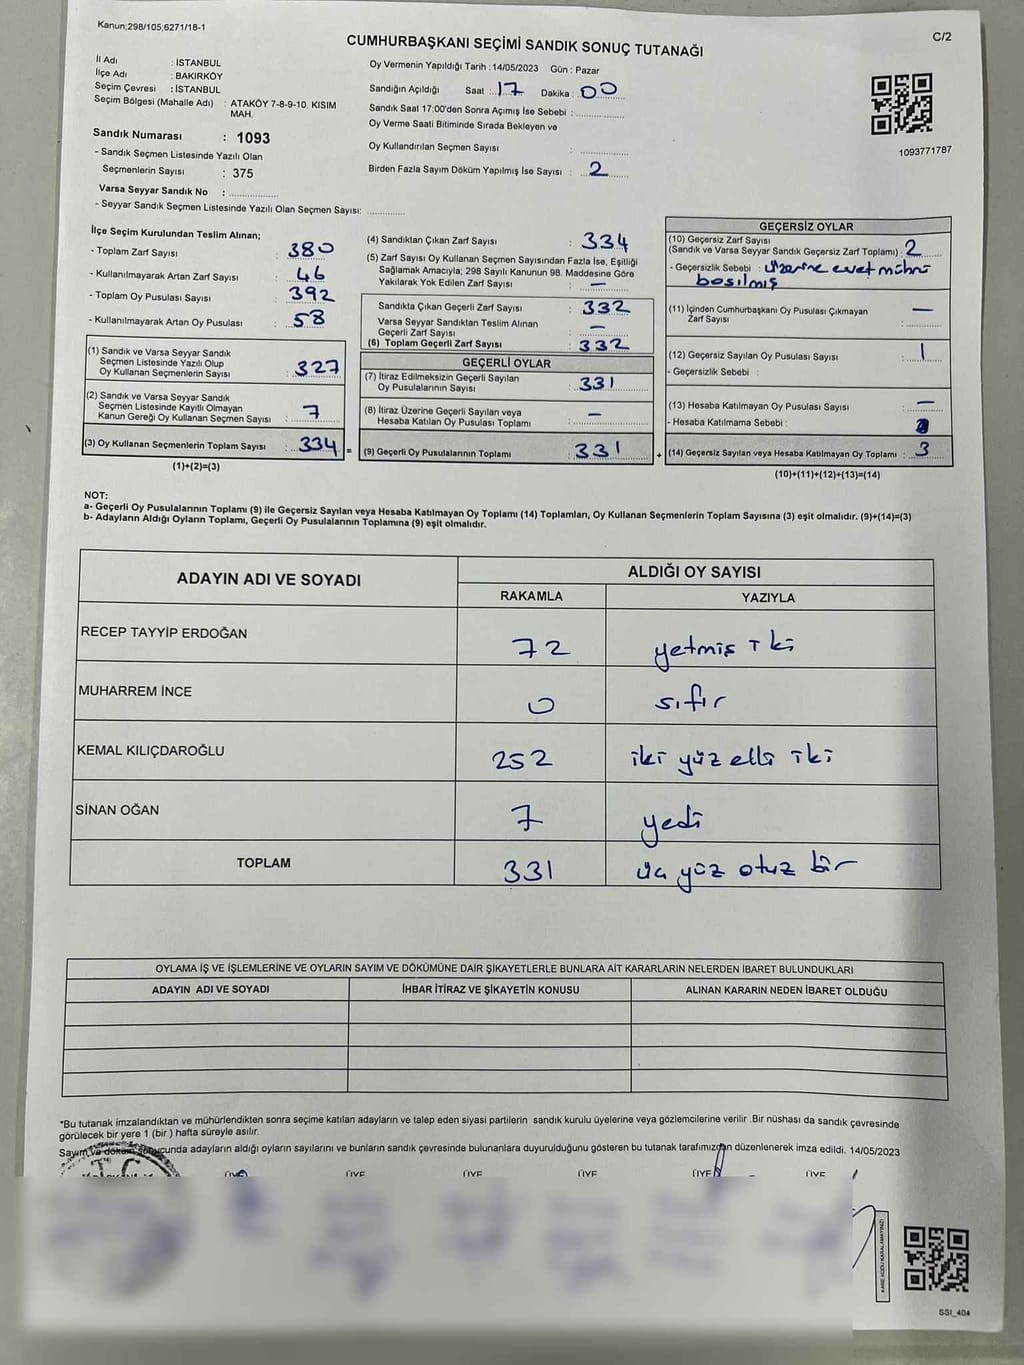 Kanun;298/105;6271/18-1
C/2
CUMHURBAŞKANI SEÇİMİ SANDIK SONUÇ TUTANAĞI
İl Adı : İSTANBUL
İlçe Adı : BAKIRKÖY
Seçim Çevresi : İSTANBUL
Seçim Bölgesi (Mahalle Adı) : ATAKÖY 7-8-9-10. KISIM
MAH.
Sandık Numarası : 1093
- Sandık Seçmen Listesinde Yazılı Olan
Seçmenlerin Sayısı : 375
Varsa Seyyar Sandık No :
- Seyyar Sandık Seçmen Listesinde Yazılı Olan Seçmen Sayısı:
Oy Vermenin Yapıldığı Tarih : 14/05/2023 Gün : Pazar
Sandığın Açıldığı Saat : 17 Dakika : 00
Sandık Saat 17:00'den Sonra Açımış İse Sebebi :
Oy Verme Saati Bitiminde Sırada Bekleyen ve
Oy Kullandırılan Seçmen Sayısı :
Birden Fazla Sayım Döküm Yapılmış İse Sayısı : 2
1093771787
İlçe Seçim Kurulundan Teslim Alınan;
- Toplam Zarf Sayısı : 380
- Kullanılmayarak Artan Zarf Sayısı : 46
- Toplam Oy Pusulası Sayısı : 392
- Kullanılmayarak Artan Oy Pusulası : 58
(1) Sandık ve Varsa Seyyar Sandık
Seçmen Listesinde Yazılı Olup
Oy Kullanan Seçmenlerin Sayısı : 327
(2) Sandık ve Varsa Seyyar Sandık
Seçmen Listesinde Kayıtlı Olmayan
Kanun Gereği Oy Kullanan Seçmen Sayısı : 7
(3) Oy Kullanan Seçmenlerin Toplam Sayısı : 334 =
(1)+(2)=(3)
(4) Sandıktan Çıkan Zarf Sayısı : 334
(5) Zarf Sayısı Oy Kullanan Seçmen Sayısından Fazla İse, Eşitliği
Sağlamak Amacıyla; 298 Sayılı Kanunun 98. Maddesine Göre
Yakılarak Yok Edilen Zarf Sayısı : —
Sandıkta Çıkan Geçerli Zarf Sayısı : 332
Varsa Seyyar Sandıktan Teslim Alınan
Geçerli Zarf Sayısı : —
(6) Toplam Geçerli Zarf Sayısı : 332
GEÇERLİ OYLAR
(7) İtiraz Edilmeksizin Geçerli Sayılan
Oy Pusulalarının Sayısı : 331
(8) İtiraz Üzerine Geçerli Sayılan veya
Hesaba Katılan Oy Pusulası Toplamı : —
(9) Geçerli Oy Pusulalarının Toplamı : 331 +
GEÇERSİZ OYLAR
(10) Geçersiz Zarf Sayısı
(Sandık ve Varsa Seyyar Sandık Geçersiz Zarf Toplamı) : 2
- Geçersizlik Sebebi : üzerine evet mührü
basılmış
(11) İçinden Cumhurbaşkanı Oy Pusulası Çıkmayan
Zarf Sayısı : —
(12) Geçersiz Sayılan Oy Pusulası Sayısı : 1
- Geçersizlik Sebebi :
(13) Hesaba Katılmayan Oy Pusulası Sayısı : —
- Hesaba Katılmama Sebebi :
(14) Geçersiz Sayılan veya Hesaba Katılmayan Oy Toplamı : 3
(10)+(11)+(12)+(13)=(14)
NOT:
a- Geçerli Oy Pusulalarının Toplamı (9) ile Geçersiz Sayılan veya Hesaba Katılmayan Oy Toplamı (14) Toplamları, Oy Kullanan Seçmenlerin Toplam Sayısına (3) eşit olmalıdır. (9)+(14)=(3)
b- Adayların Aldığı Oyların Toplamı, Geçerli Oy Pusulalarının Toplamına (9) eşit olmalıdır.
ADAYIN ADI VE SOYADI ALDIĞI OY SAYISI
RAKAMLA YAZIYLA
RECEP TAYYİP ERDOĞAN 72 yetmiş iki
MUHARREM İNCE 0 sıfır
KEMAL KILIÇDAROĞLU 252 iki yüz elli iki
SİNAN OĞAN 7 yedi
TOPLAM 331 üç yüz otuz bir
OYLAMA İŞ VE İŞLEMLERİNE VE OYLARIN SAYIM VE DÖKÜMÜNE DAİR ŞİKAYETLERLE BUNLARA AİT KARARLARIN NELERDEN İBARET BULUNDUKLARI
ADAYIN ADI VE SOYADI İHBAR İTİRAZ VE ŞİKAYETİN KONUSU ALINAN KARARIN NEDEN İBARET OLDUĞU
*Bu tutanak imzalandıktan ve mühürlendikten sonra seçime katılan adayların ve talep eden siyasi partilerin sandık kurulu üyelerine veya gözlemcilerine verilir .Bir nüshası da sandık çevresinde
görülecek bir yere 1 (bir ) hafta süreyle asılır.
Sayım ve döküm sonucunda adayların aldığı oyların sayılarını ve bunların sandık çevresinde bulunanlara duyurulduğunu gösteren bu tutanak tarafımızdan düzenlenerek imza edildi. 14/05/2023
T.C.
ÜYE ÜYE ÜYE ÜYE ÜYE ÜYE
KARE KODU KARALAMAYINIZ!
SSI_404